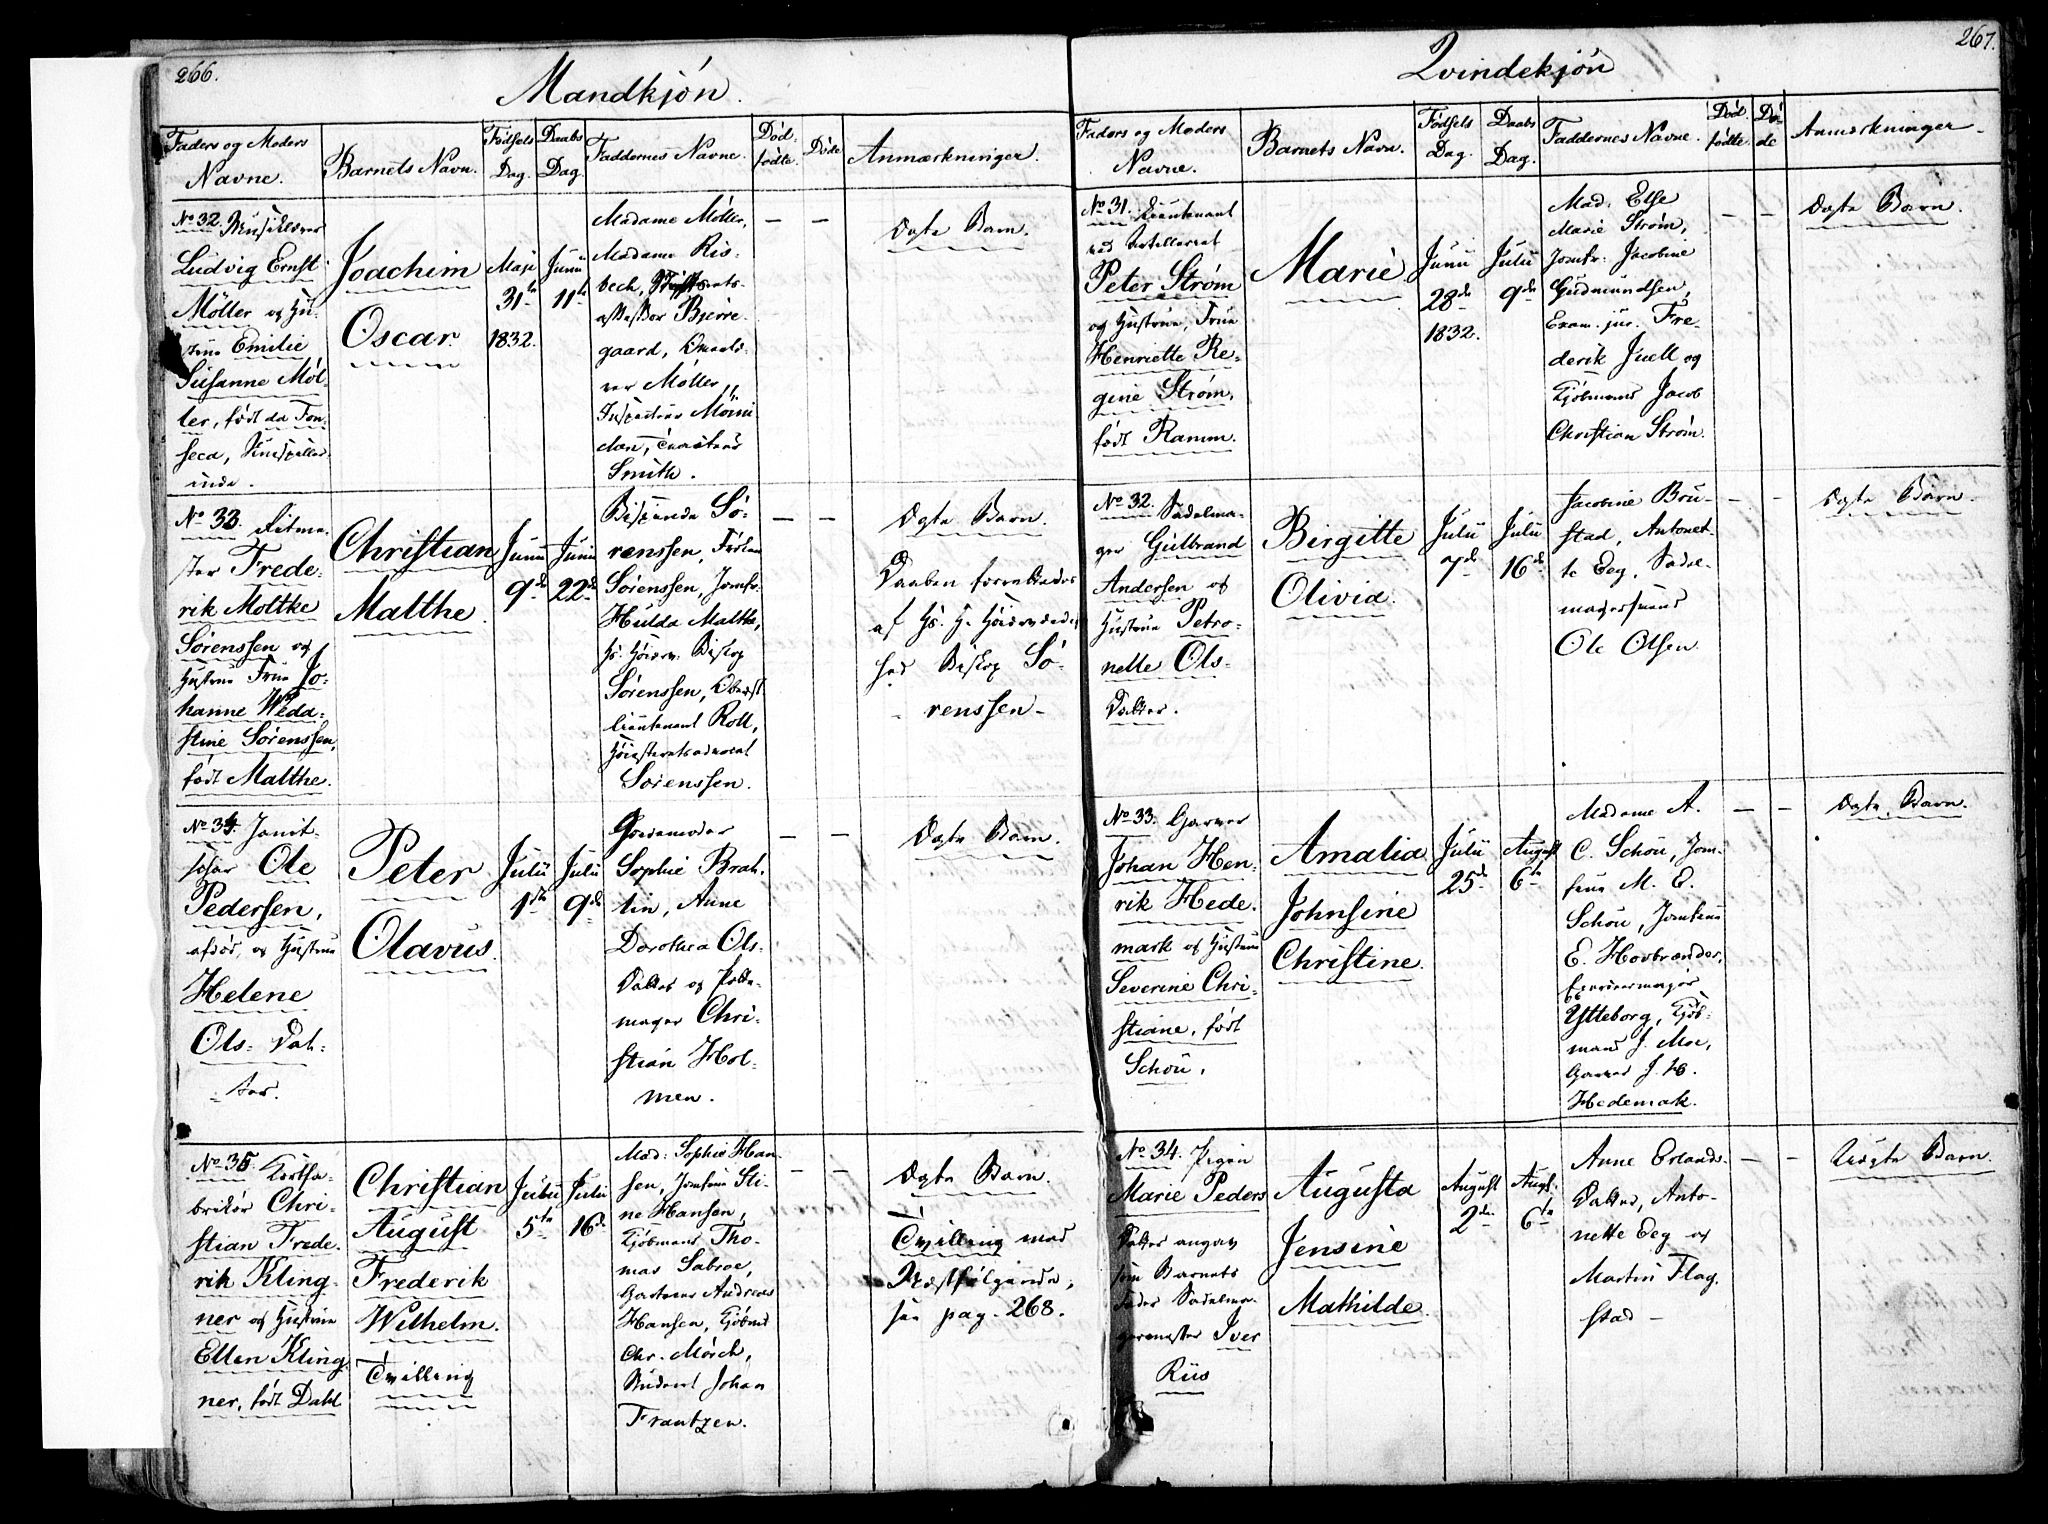 266.
Mandkjón.
Faders og Moders
Navne.
Barnets Navn.
Fødsels
Dag.
Daabs
Dag.
Faddernes Navne.
Død-
fødte.
Døde
Anmærkninger.
No 32.
Ludvig Ernst
Móller og Hu-
strue Emilie
Susanne Mól-
ler, født da Fon-
seca,
inde.
Joachim
Oscar
Maji
31te
1832.
Junii
11te
Madame Móller,
Madame Ris-
bech,
Bjerre-
gaard,
Móller,
Smith.
— —
Ægte Barn.
No 33. Ritme-
ster Frede-
rik Moltke
Sórenssen og
Hustrue Frue Jo-
hanne Weda-
stine Sórenssen,
født Malthe.
Christian
Malthe.
Junii
9de
Junii
22de
Bispinde Só-
renssen, Frøken
Sórenssen, Jomfr.
Hulda Malthe,
Hs. Høiærv. Biskop
Sórenssen, Oberst-
lieutenant Roll,
Høiesteretsadvocat
Sórenssen.
— —
Ægte Barn.
Daaben forrettedes
af Hs. H. Høiærvædig-
hed Biskop Só-
renssen-
No 34. Janit-
schar Ole
Pedersen,
afdød, og Hustrue
Helene
Ols- Dat-
ter.
Peter
Olavus.
Julii
1ste
Julii
9de
Gjordemoder
Sophie Brah-
lin, Anne
Dorothea Ols-
Datter og Potte-
mager Chri-
stian Hol-
men.
— —
Ægte Barn.
No 35. Kortfa-
brikør Chri-
stian Frede-
rik Kling-
ner og Hustrue
Ellen Kling-
ner, født Dahl
Christian
August
Frederik
Wilhelm.
Tvilling
Julii
5te
Julii
16de
Mad: Sophie Han-
sen, Jomfrue Sti-
ne Hansen,
Kjóbmand Tho-
mas Sabroe,
Gartner Andreas
Hansen, Kjóbmd
Chr. Mórch,
Student Johan
Frantzen.
— —
Ægte Barn.
Tvilling med
Næstfølgende,
see pag. 268.
267.
Qvindekjón
Faders og Moders
Navne.
Barnets Navn.
Fødsels
Dag.
Daabs
Dag.
Faddernes Navne.
Død-
fødte.
Dø-
de
Anmærkninger
No 31. Lieutenant
ved Artilleriet
Peter Stróm
og Hustrue, Frue
Henriette Re-
gine Stróm,
født Ramm.
Marie
Junii
28de
1832.
Julii
9de
Mad: Else
Marie Stróm,
Jomfr. Jacobine
Gudmundsen,
Exam. jur. Fre-
derik Juell og
Kjóbmand Jacob
Christian Stróm.
— —
Ægte Barn.
No 32. Sadelma-
ger Gulbrand
Andersen og
Hustrue Petro-
nelle Ols-
Datter.
Birgitte
Olivia.
Julii
7de
Julii
16de
Jacobine Bru-
stad, Antonet-
te Eeg, Sadel-
magersvend
Ole Olsen
— —
Ægte Barn.
No 33. Garver
Johan Hen-
rik Hede-
mark og Hustrue
Severine Chri-
stiane, født
Schou.
Amalia
Johnsine
Christine.
Julii
25de
August
6te
Madame A.
C. Schou, Jom-
frue M. E.
Schou, Jomfrue
E. Hovbrender,
Ytteborg, Kjób-
mand J. Moe,
Garver J. H.
Hedemak.
— —
Ægte Barn.
No 34. Pigen
Marie Peders
Datter angav
som Barnets
Fader Sadelma-
germester Iver
Riis
Augusta
Jensine
Mathilde.
August
2de
Augt.
6te
Anne Erlands-
Datter, Anto-
nette Eeg og
Martin Flag-
stad-
— —
Uægte Barn.